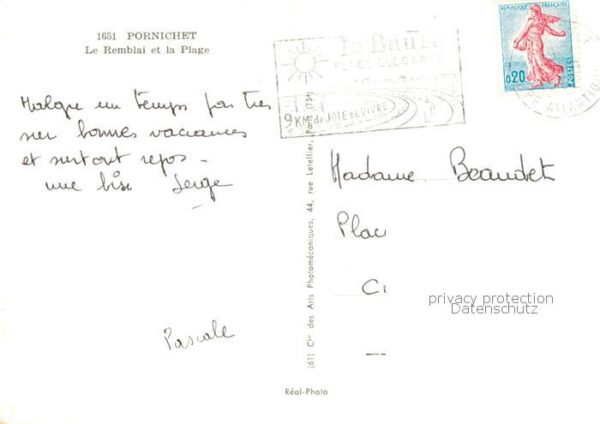 1651 PORNICHET
Le Remblai et la Plage
Malgré un temps pas très
sur bonnes vacances
et surtout repos -
une bise Serge
Pascale
(61) Cie des Arts Photomécaniques, 44, rue Letellier, Paris (15e)
Réal-Photo
la Baule
PLAGE ELEGANTE
9 KM de JOIE de VIVRE
REPUBLIQUE FRANÇAISE
0,20
POSTES
ATLANTIQUE
Madame Beaudet
Plac
C
privacy protection
Datenschutz